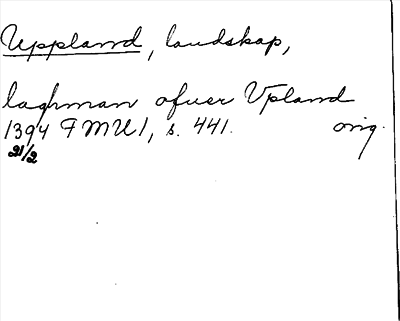 Uppland, landskap,
laghman ofuer Vpland
1394 FMU 1, s. 441. orig.
21/2